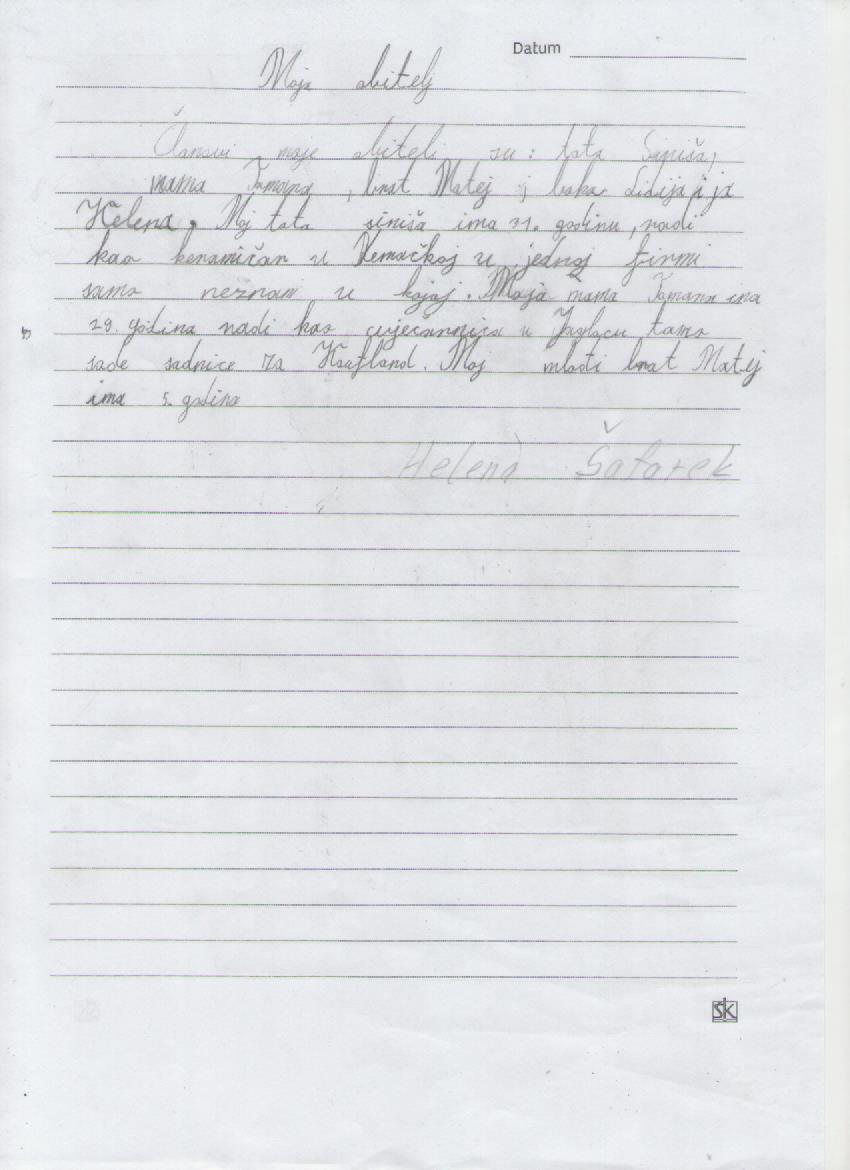 Datum
Moja obitelj
Članovi moje obiteli su: tata Siniša,
mama Tamara, brat Matej i baka Lidija i ja
Helena. Moj tata siniša ima 31. godinu, radi
kao keramičar u Nemačkoj u jednoj firmi
samo neznam u kojoj. Moja mama Tamara ima
29. godina radi kao cvjecarnica u tamo
sade sadnice za Kaufland. Moj mlađi brat Matej
ima 5. godina
Helena Šafarek
ŠK